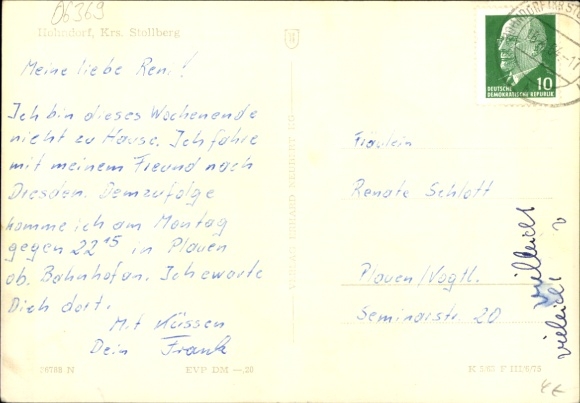 06369
Hohndorf, Krs. Stollberg
Meine liebe Reni!
Ich bin dieses Wochenende
nicht zu Hause. Ich fahre
mit meinem Freund nach
Dresden. Demzufolge
komme ich am Montag
gegen 22 15 in Plauen
ob. Bahnhof an. Ich erwarte
Dich dort.
Mit Küssen
Dein Frank
DEUTSCHE
DEMOKRATISCHE REPUBLIK
10
Fräulein
Renate Schlott
Plauen/Vogtl.
Seminarstr. 20
vielleicht
vielleicht ?
EVP DM —.20